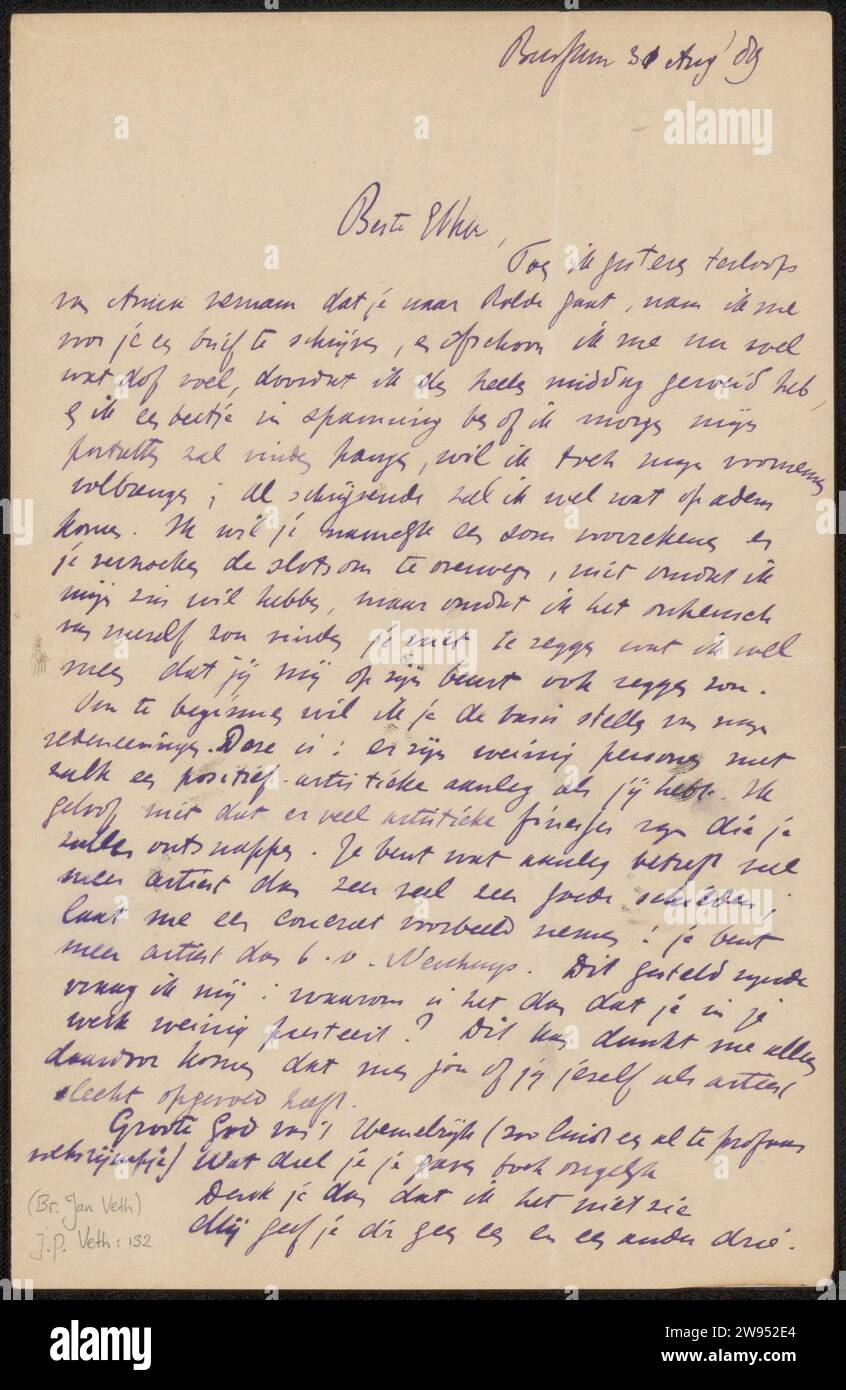 Bussum 31 Aug' 89
Beste Ebha,
Toen ik gisteren terloops
van Annen vernam dat je naar Rolde gaat, nam ik me
voor je een brief te schrijven, en ofschoon ik me nu wel
wat dof voel, doordat ik den heelen middag geroeid heb,
en ik een beetje in spanning ben of ik morgen mijn
portretten zal vinden hangen, wil ik toch mijn voornemen
volbrengen; al schrijvende zal ik wel wat op adem
komen. Ik wil je namelijk een som voorrekenen en
je verzoeken de slotsom te overwegen, niet omdat ik
mijn zin wil hebben, maar omdat ik het onheusch
van meself zou vinden je niet te zeggen wat ik wel
meen dat jij mij op zijn beurt ook zeggen zou.
Om te beginnen wil ik je de basis stellen van mijn
redeneeringen. Deze is: er zijn weinig personen met
zulk een positief-artistieke aanleg als jij hebt. Ik
geloof niet dat er veel artistieke finesses zijn die je
zullen ontsnappen. Je bent wat aanleg betreft veel
meer artiest dan zeer veel zeer goede schilders;
laat me een concreet voorbeeld nemen: je bent
meer artiest dan b.v. Neuhuys. Dit gesteld zijnde
vraag ik mij: waarom is het dan dat je in je
werk weinig presteert? Dit kan dunkt me alleen
daardoor komen dat men jou of jij jeself als artiest
slecht opgevoed heeft.
Groote God van 't Hemelrijk (zoo luidt een al te profaan
volksrijmpje) Wat deel je je gaven toch ongelijk
Denk je dan dat ik het niet zie
Mij geef je d'r geen een en een ander drie.
(Br. Jan Veth)
J.P. Veth: 132
alamy
alamy
2W952E4